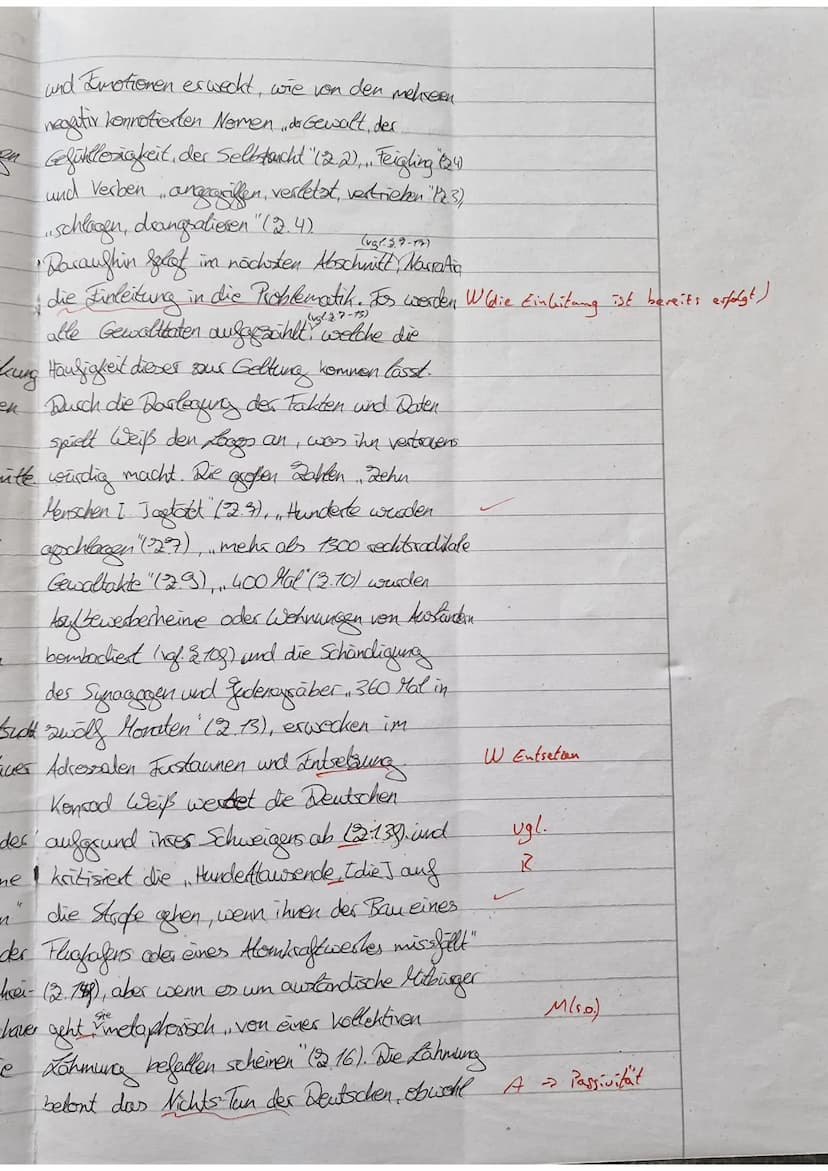 und Emotionen erweckt, wie von den mehreren
negativ konnotierten Nomen „der Gewalt, der
gen Gefühllosigkeit, der Selbstsucht" (Z.2), „Feigling" (Z.4)
und Verben „angegriffen, verletzt, vertrieben" (Z.3),
„schlagen, drangsalieren" (Z.4).
(vgl. Z.7-13)
Daraughin folgt im nächsten Abschnitt, Narratio
die Einleitung in die Problematik. Es werden W (die Einleitung ist bereits erfolgt)
(vgl. Z.7-13)
alle Gewalttaten aufgezählt, welche die
kung Häufigkeit dieser zur Geltung kommen lässt.
en Durch die Darlegung der Fakten und Daten
spielt Weiß den Logos an, was ihn vertrauens
würdig macht. Die großen Zahlen „Zehn
Menschen [ ] getötet" (Z.7), „Hunderte wurden
geschlagen" (Z.7), „mehr als 1300 rechtsradikale
Gewaltakte" (Z.9), „400 Mal" (Z.10) wurden
Asylbewerberheime oder Wohnungen von Ausländern
bombardiert (vgl. Z.10f) und die Schändigung
des Synagogen und Judengräber „360 Mal in
sucht zwölf Monaten" (Z.13), erwecken im
Adressaten Erstaunen und Entsetzung W Entsetzen
Konrad Weiß wertet die Deutschen
des aufgrund ihres Schweigens ab (Z.13f) und vgl.
ne kritisiert die „Hunderttausende, [die] auf Z
n" die Straße gehen, wenn ihnen der Bau eines
der Flughafens oder eines Atomkraftwerkes missfällt"
(Z.14f), aber wenn es um ausländische Mitbürger
geht, sie metaphorisch „von einer kollektiven M (s.o.)
e Lähmung befallen scheinen" (Z.16). Die Lähmung
betont das Nichts-Tun der Deutschen, obwohl A → Passivität